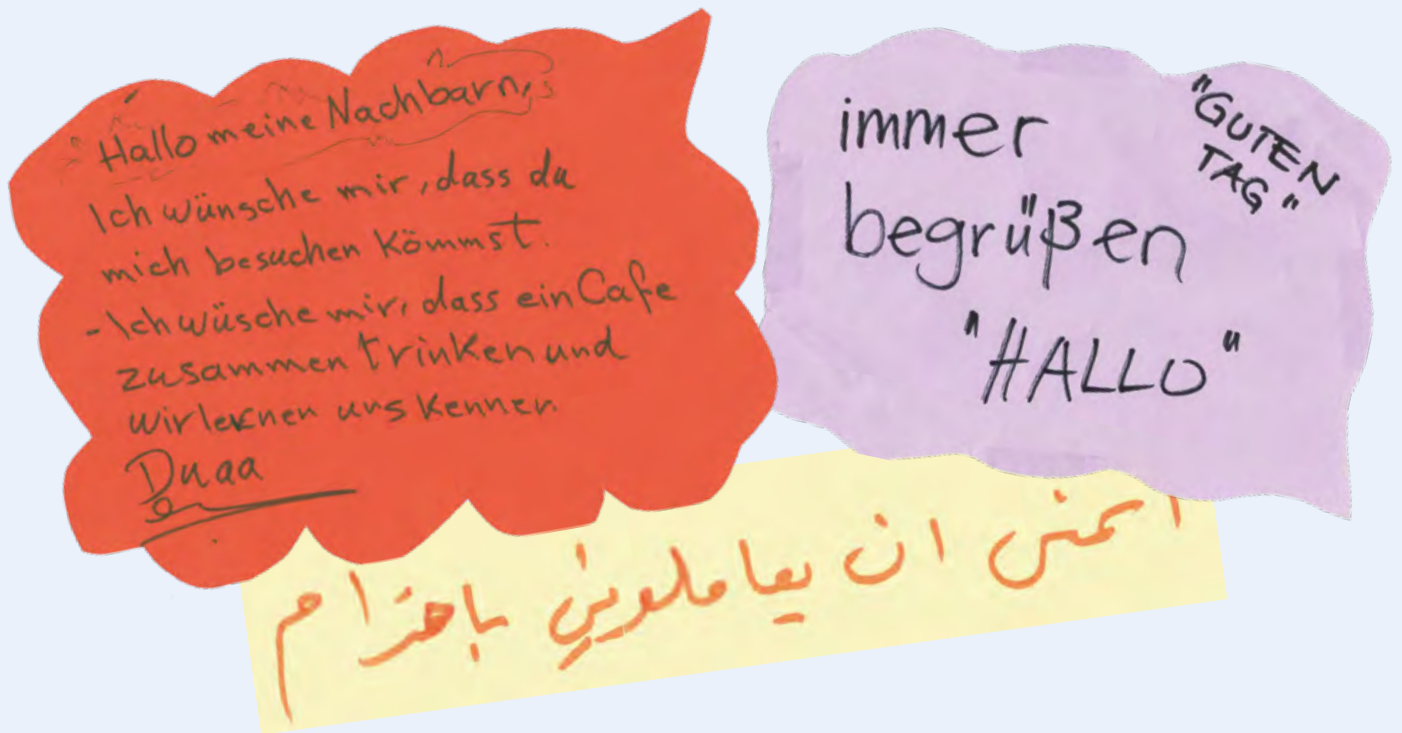 Hallo meine Nachbarn,
Ich wünsche mir, dass du
mich besuchen kömmst.
- Ich wüsche mir, dass ein Cafe
zusammen trinken und
wir lernen uns kennen
Duaa
"GUTEN
TAG"
immer
begrüßen
"HALLO"
اتمنى ان يعاملوني باحترام